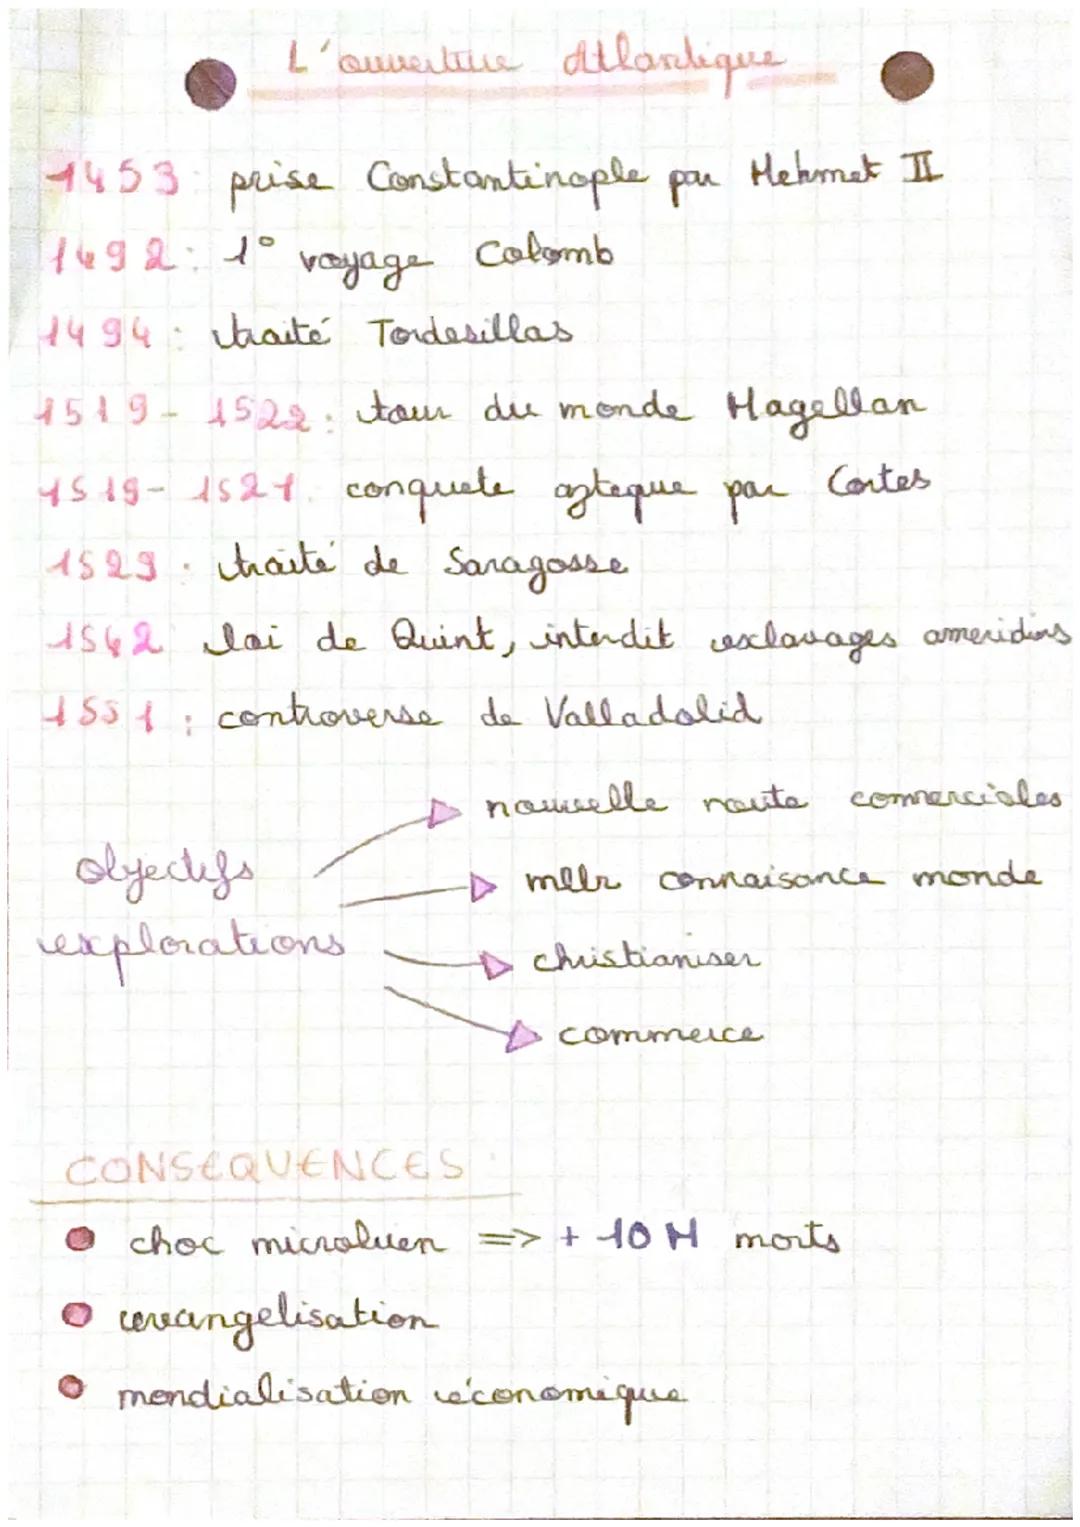 L'ouverture Atlantique
1453: prise Constantinople par Mehmet II
1492: 1° voyage Colomb
1494: traité Tordesillas
1519-1522: tour du monde Magellan
1519-1521: conquete azteque par Cortes
1529: traité de Saragosse
1542 loi de Quint, interdit esclavages ameridins
1551: controverse de Valladolid
objectifs explorations
nouvelle route commerciales
mllr connaisance monde
christianiser
commerce
CONSEQUENCES:
choc microbien => + 10 M morts
evangelisation
mondialisation économique